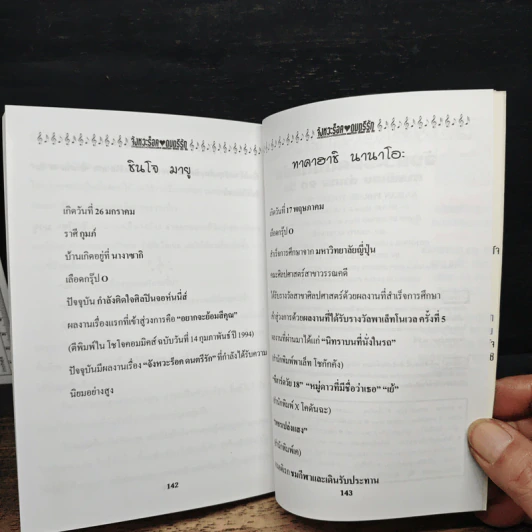 จังหวะร็อค♥ดนตรีรัก
ชินโจ มายู
เกิดวันที่ 26 มกราคม
ราศี กุมภ์
บ้านเกิดอยู่ที่ นางาซากิ
เลือดกรุ๊ป O
ปัจจุบัน กำลังติดใจศิลปินจอห์นนี่ส์
ผลงานเรื่องแรกที่เข้าสู่วงการคือ "อยากจะย้อมสีคุณ"
(ตีพิมพ์ใน โชโจคอมมิคส์ ฉบับวันที่ 14 กุมภาพันธ์ ปี 1994)
ปัจจุบันมีผลงานเรื่อง "จังหวะร็อค ดนตรีรัก" ที่กำลังได้รับความ
นิยมอย่างสูง
142
จังหวะร็อค♥ดนตรีรัก
ทาคาฮาชิ นานาโอะ
เกิดวันที่ 17 พฤษภาคม
เลือดกรุ๊ป O
สำเร็จการศึกษาจาก มหาวิทยาลัยญี่ปุ่น
คณะศิลปศาสตร์สาขาวรรณคดี
ได้รับรางวัลสาขาศิลปศาสตร์ด้วยผลงานที่สำเร็จการศึกษา
เข้าสู่วงการด้วยผลงานที่ได้รับรางวัลพาเล็ทโนเวล ครั้งที่ 5
ผลงานที่ผ่านมาได้แก่ "นิทราบนที่นั่งในรถ"
สำนักพิมพ์พาเล็ท โชกักคัง)
18" "หมู่ดาวที่มีชื่อว่าเธอ"
สำนักพิมพ์ X โคดันฉะ)
ชมกีฬาและเดินรับประทาน
143